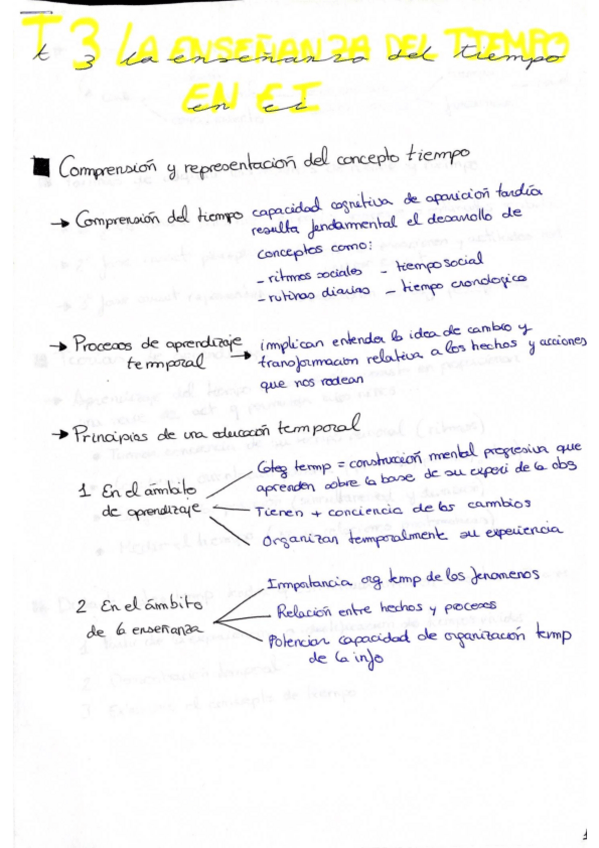 T 3 LA ENSEÑANZA DEL TIEMPO
t 3 la enseñanza del tiempo
EN EI
en ei
Comprensión y representación del concepto tiempo
→ Comprensión del tiempo capacidad cognitiva de aparición tardía
resulta fundamental el desarollo de
conceptos como:
- ritmos sociales - tiempo social
- rutinas diarias - tiempo cronologico
→ Procesos de aprendizaje temporal → implican entender la idea de cambio y
transformacion relativa a los hechos y acciones
que nos rodean
→ Principios de una educación temporal
1 En el ámbito de aprendizaje
Categ temp = construcción mental progresiva que
aprenden sobre la base de su experi de la obs
Tienen + conciencia de los cambios
Organizan temporalmente su experiencia
2 En el ámbito de la enseñanza
Importancia org temp de los fenomenos
Relación entre hechos y procesos
Potencian capacidad de organización temp
de la info
1